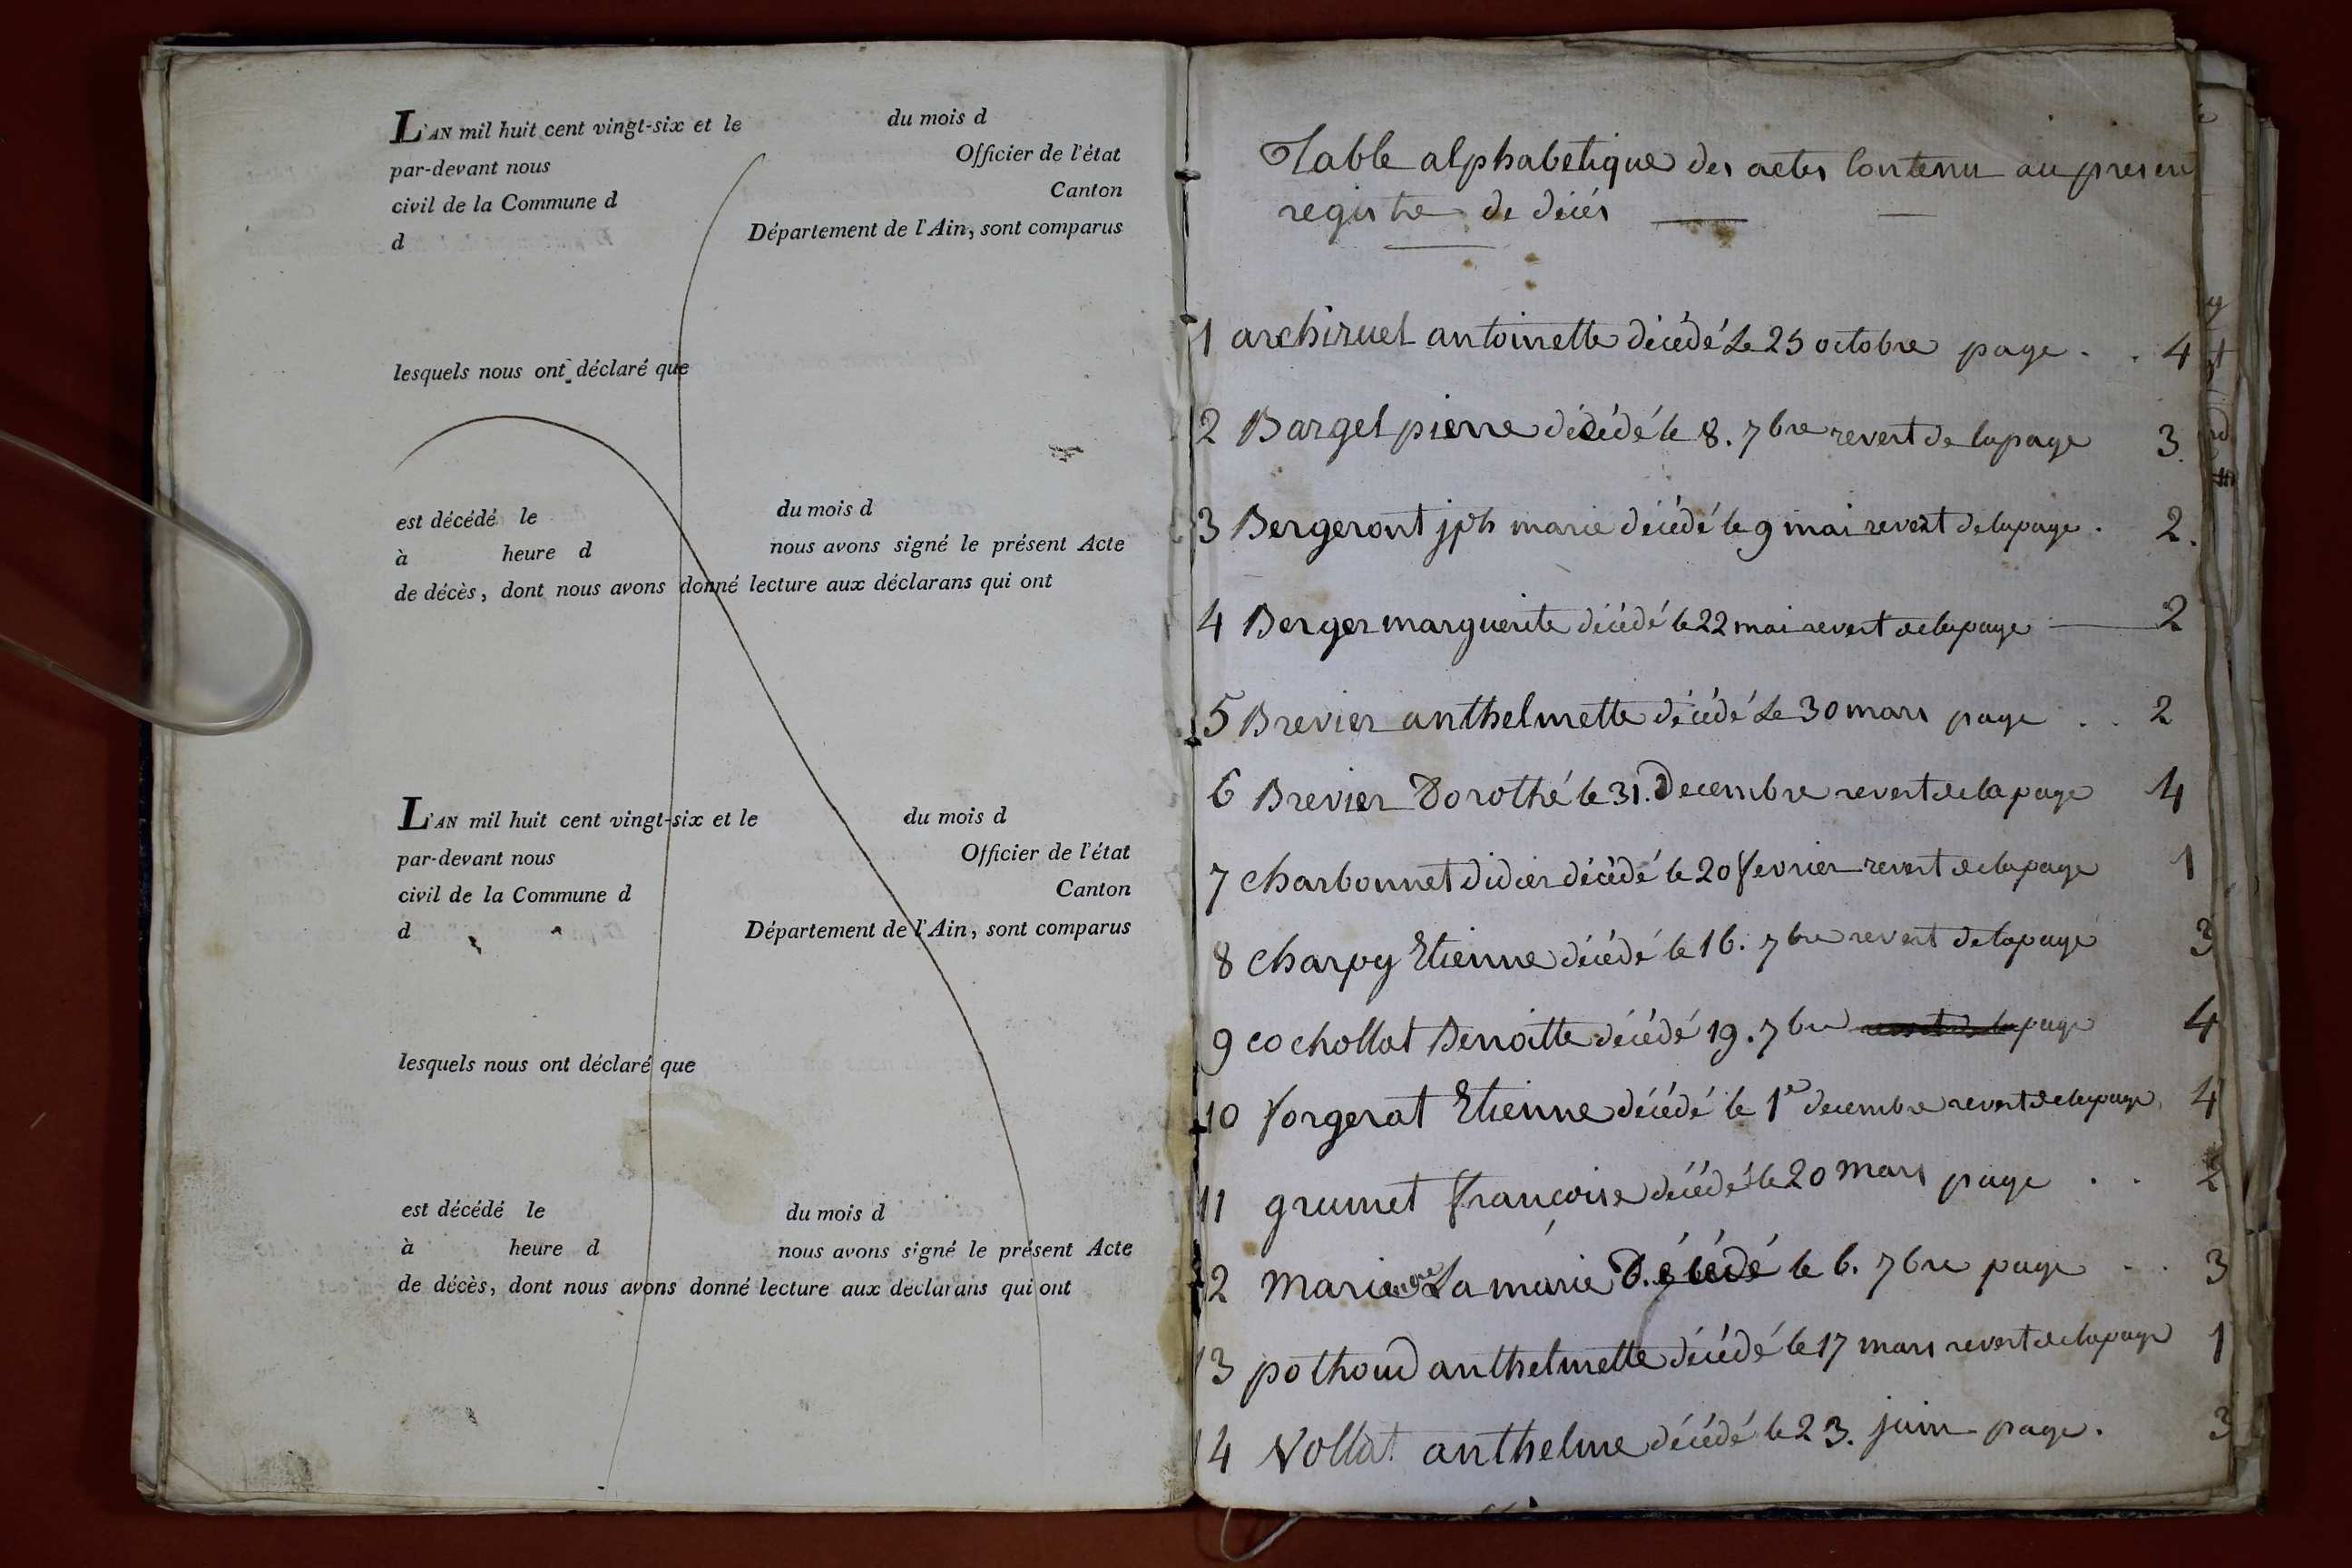 L'AN mil huit cent vingt-six et le du mois d
par-devant nous Officier de l'état
civil de la Commune d Canton
d Département de l'Ain, sont comparus
lesquels nous ont déclaré que
est décédé le du mois d
à heure d nous avons signé le présent Acte
de décès, dont nous avons donné lecture aux déclarans qui ont
L'AN mil huit cent vingt-six et le du mois d
par-devant nous Officier de l'état
civil de la Commune d Canton
d Département de l'Ain, sont comparus
lesquels nous ont déclaré que
est décédé le du mois d
à heure d nous avons signé le présent Acte
de décès, dont nous avons donné lecture aux déclarans qui ont
Table alphabetique des actes Contenu au presen
registre de décés
1 archiruel antoinette décédé Le 25 octobre page . . 4
2 Barget pierre décédé le 8. 7bre revert de la page 3
3 Bergeront jph marie décédé le 9 mai revert de la page . 2.
4 Berger marguerite décédé le 22 mai revert de la page 2
5 Brevier anthelmette décédé Le 30 mars page . . 2
6 Brevier Dorothé le 31. Decembre revert de la page 4
7 Charbonnet didier décédé le 20 fevrier revert de la page 1
8 Charpy Etienne décédé le 16. 7bre revert de la page 3
9 Cochollat Benoitte décédé 19. 7bre page 4
10 forgerat Etienne décédé le 1e decembre revert de la page 4
11 grumet françoise décédé le 20 mars page . . 2
12 Marie La marie Décédé le 6. 7bre page . . 3
13 pothoud anthelmette décédé le 17 mars revert de la page 1
14 Vollat anthelme décédé le 23. juin page . 3